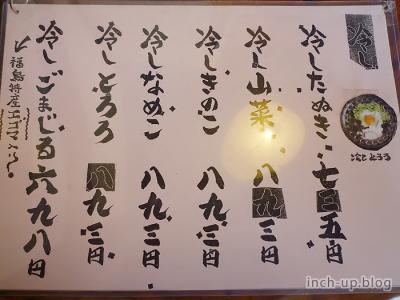 冷し
冷したぬき 七三五円
冷し山菜 八九三円
冷しきのこ 八九三円
冷しなめこ 八九三円
冷しとろろ 八九三円
冷しごまじる 六九八円
福島特産エゴマ
冷しとろろ
inch-up.blog